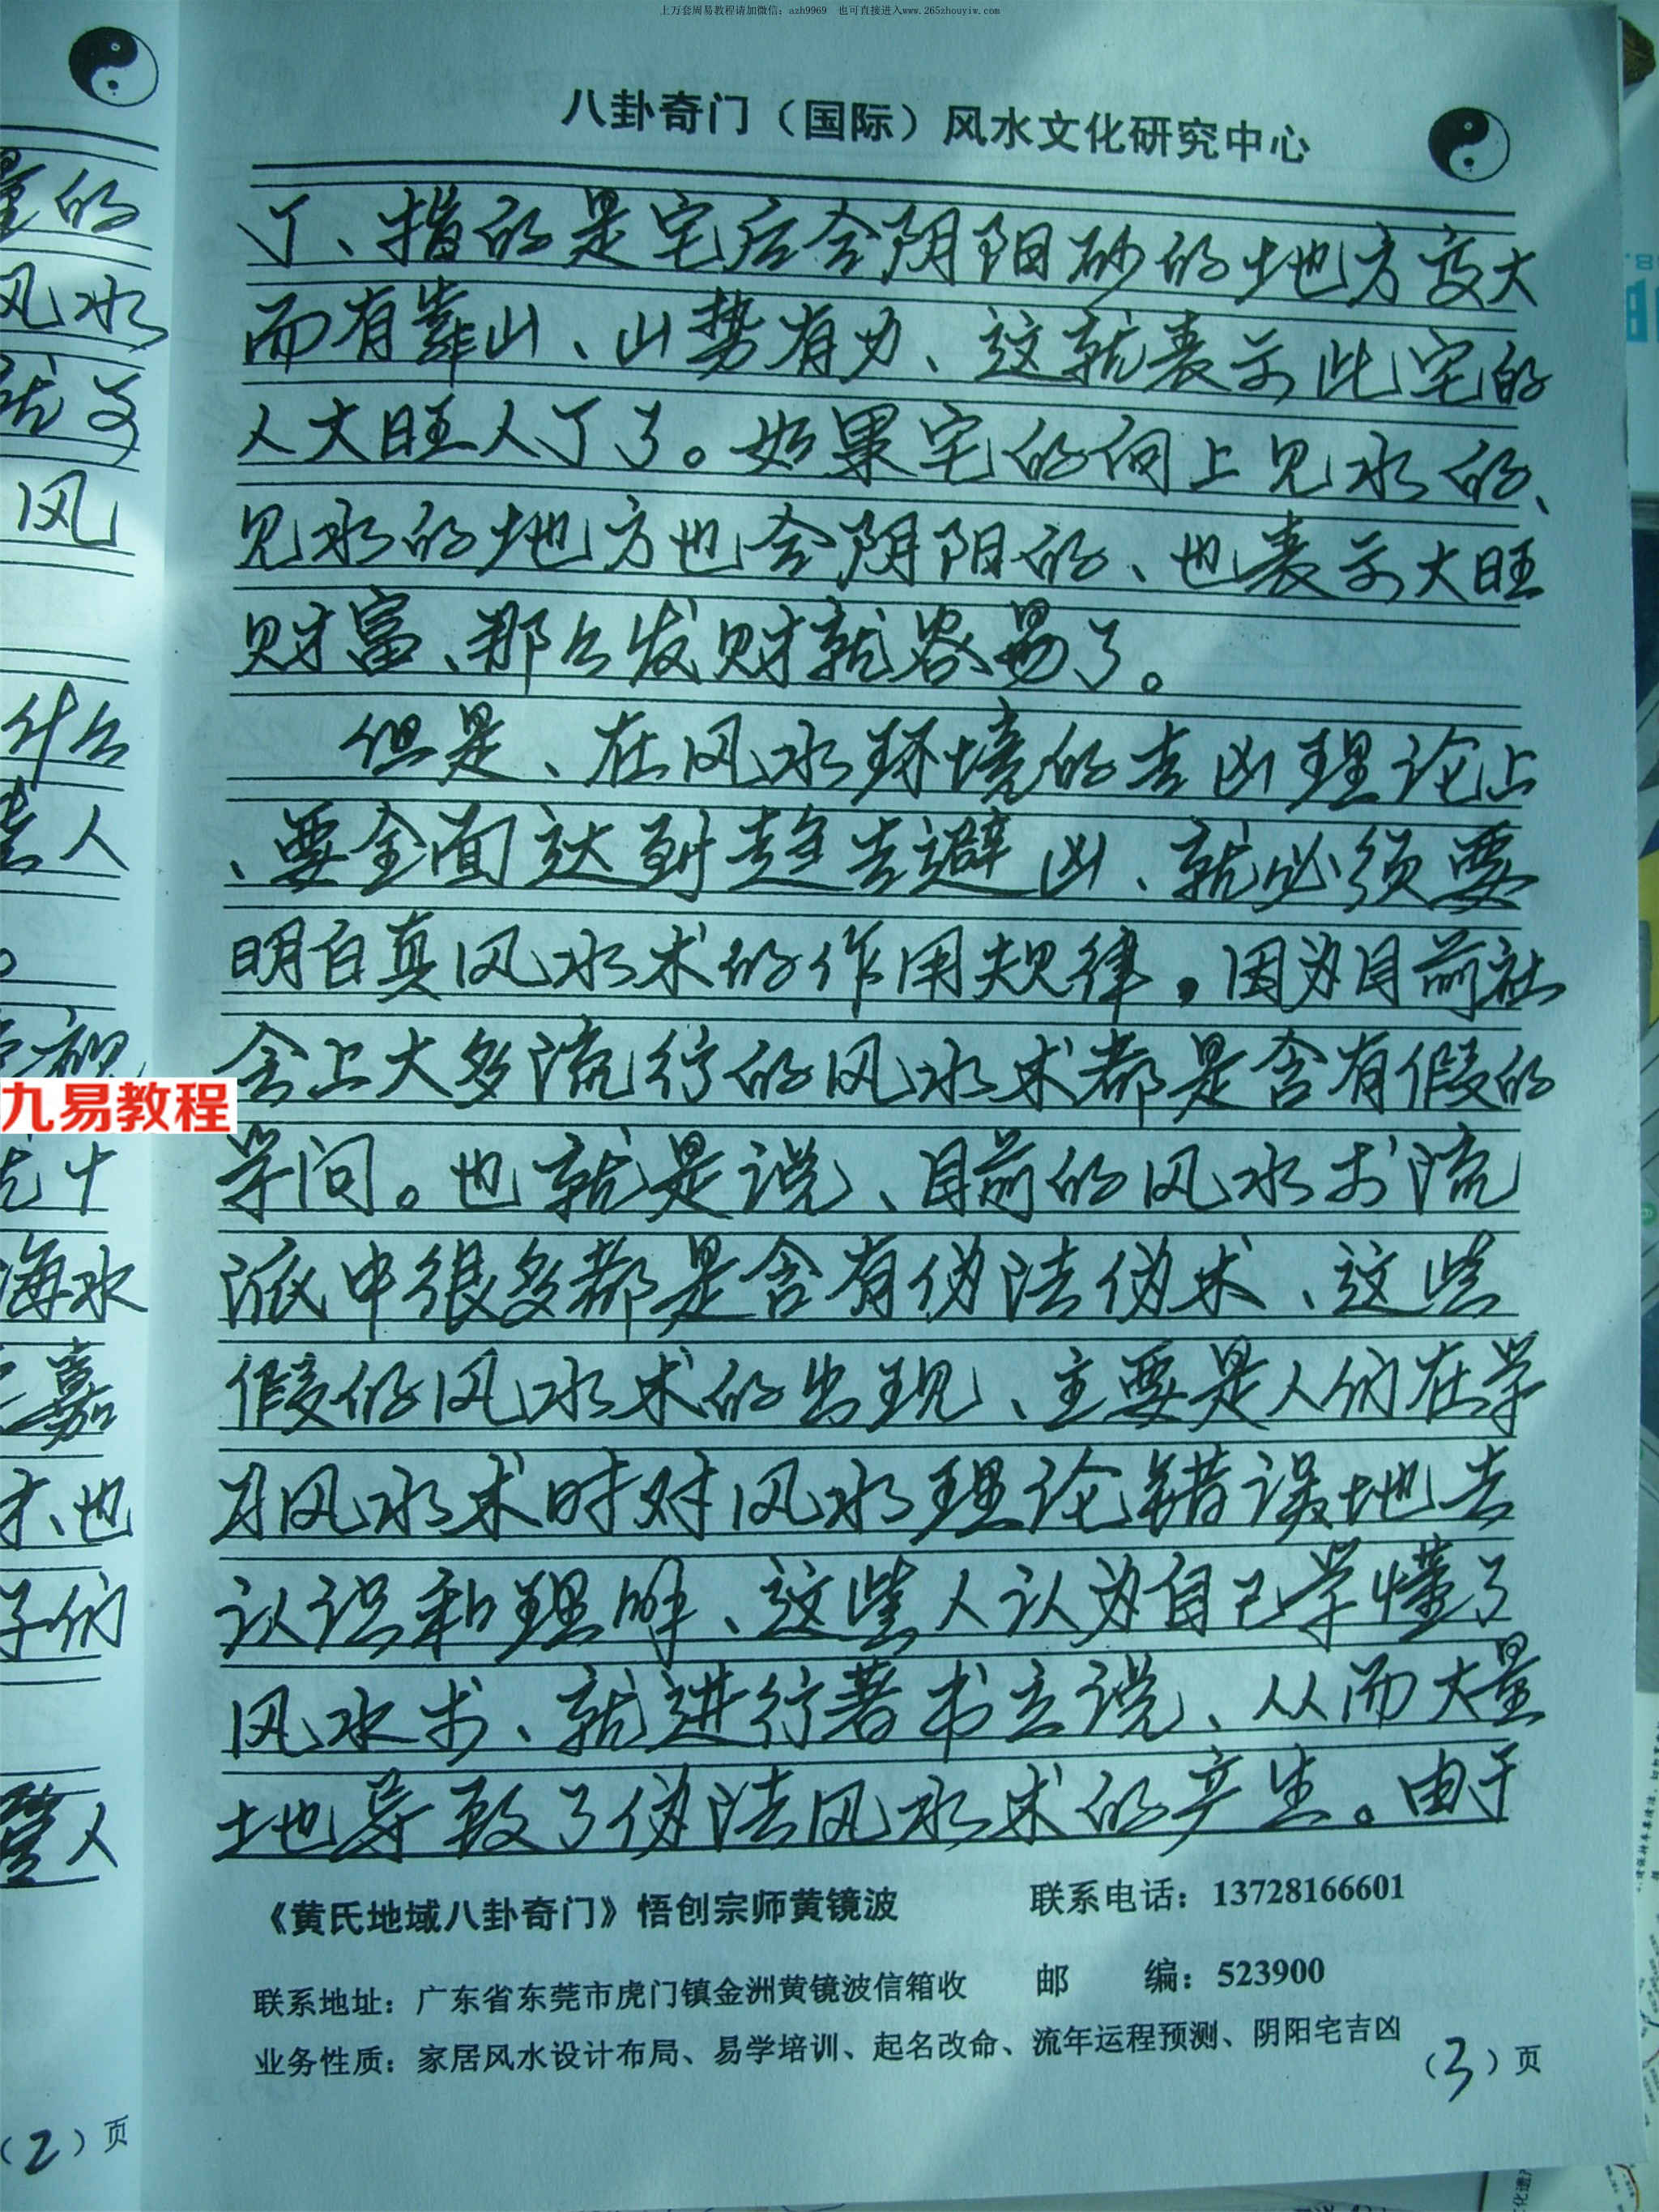 上万套周易教程请加微信：azh9969 也可直接进入www.265zhouyiw.com
八卦奇门（国际）风水文化研究中心
丁、指的是宅后合阴阳砂的地方高大
而有靠山、山势有力、这就表示此宅的
人大旺人丁了。如果宅的向上见水的、
见水的地方也合阴阳的、也表示大旺
财富、那么发财就容易了。
但是、在风水环境的吉凶理论上
、要全面达到趋吉避凶、就必须要
明白真风水术的作用规律。因为目前社
会上大多流行的风水术都是含有假的
学问。也就是说、目前的风水术流
派中很多都是含有伪法伪术、这些
假的风水术的出现、主要是人们在学
习风水术时对风水理论错误地去
认识和理解、这些人认为自己学懂了
风水术、就进行著书立说、从而大量
地导致了伪法风水术的产生。由于
《黄氏地域八卦奇门》悟创宗师黄镜波 联系电话：13728166601
联系地址：广东省东莞市虎门镇金洲黄镜波信箱收 邮 编：523900
业务性质：家居风水设计布局、易学培训、起名改命、流年运程预测、阴阳宅吉凶
（3）页
量的
风水
风
什么
人
九易教程
海水
嘉
也
们
人
（2）页